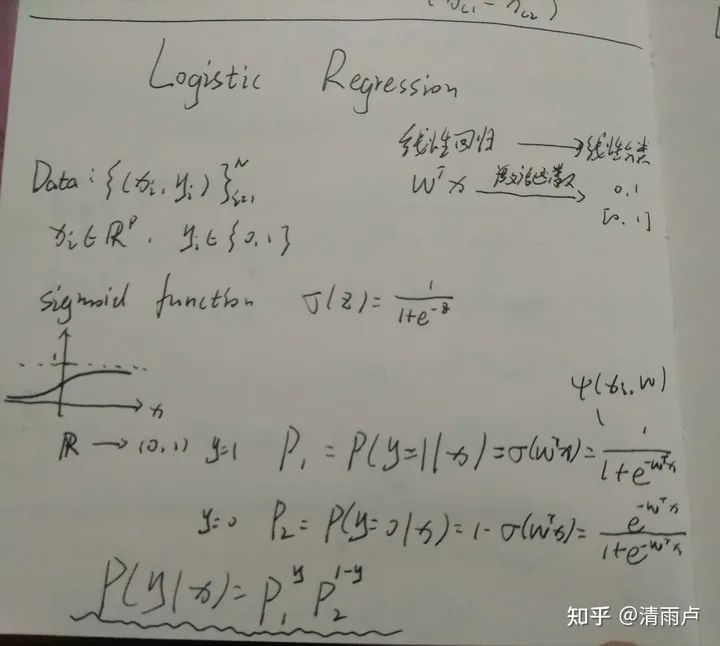 Logistic Regression
线性回归 → 线性分类
Data: {(xᵢ, yᵢ)}ᴺᵢ₌₁
wᵀx → 0, 1
[0, 1]
xᵢ ∈ ℝᵖ, yᵢ ∈ {0, 1}
sigmoid function σ(z) = 1/(1+e^{-z})
1
x
ψ(xᵢ, w)
ℝ → (0, 1) y=1 P₁ = P(y=1|x) = σ(wᵀx) = 1/(1+e^{-wᵀx})
y=0 P₂ = P(y=0|x) = 1-σ(wᵀx) = e^{-wᵀx}/(1+e^{-wᵀx})
P(y|x) = P₁^y P₂^{1-y}
知乎 @清雨卢